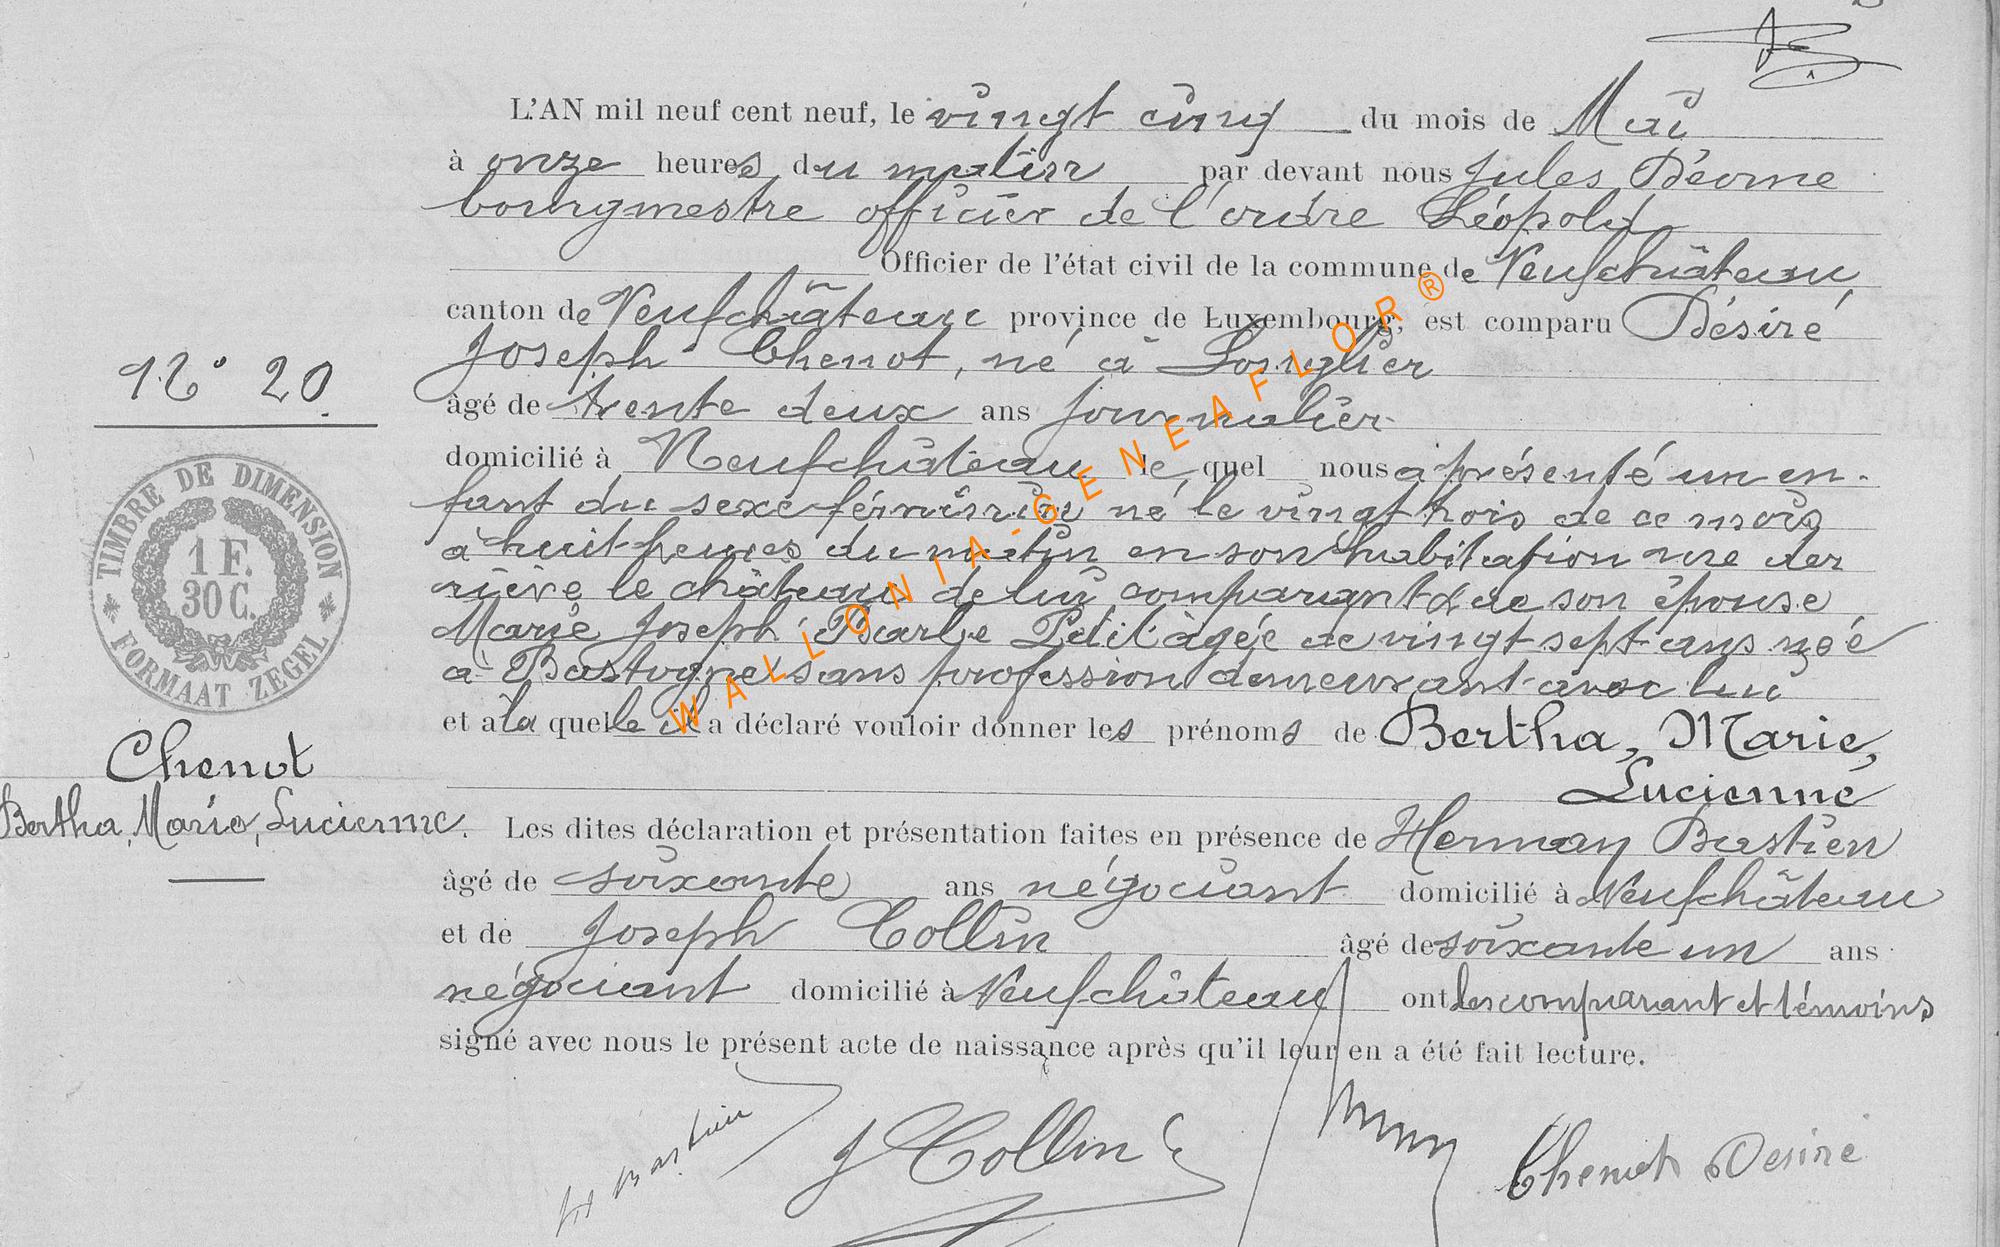 L'AN mil neuf cent neuf, le vingt cinq du mois de Mai
à onze heures du matin par devant nous Jules
bourgmestre officier de l'ordre Léopold
Officier de l'état civil de la commune de Neufchâteau,
canton de Neufchâteau province de Luxembourg, est comparu Désiré
Joseph Chenot, né à Longlier
N° 20
âgé de trente deux ans journalier
domicilié à Neufchâteau le quel nous a présenté un en-
fant du sexe féminin né le vingt trois de ce mois
à huit heures du matin en son habitation rue der
rière le château de lui comparant & de son épouse
Marie Joseph Barbe Petit âgée de vingt sept ans née
à Bastogne sans profession demeurant avec lui
TIMBRE DE DIMENSION
1 F.
30 C.
FORMAAT ZEGEL
et à la quelle il a déclaré vouloir donner les prénoms de Bertha, Marie,
Lucienne
Chenot
Bertha, Marie, Lucienne.
Les dites déclaration et présentation faites en présence de Herman Bastien
âgé de soixante ans négociant domicilié à Neufchâteau
et de Joseph Collin âgé de soixante un ans
négociant domicilié à Neufchâteau ont les comparant et témoins
signé avec nous le présent acte de naissance après qu'il leur en a été fait lecture.
H Bastien
J Collin
Chenot Désiré
WALLONIA-GENEAFLOR®